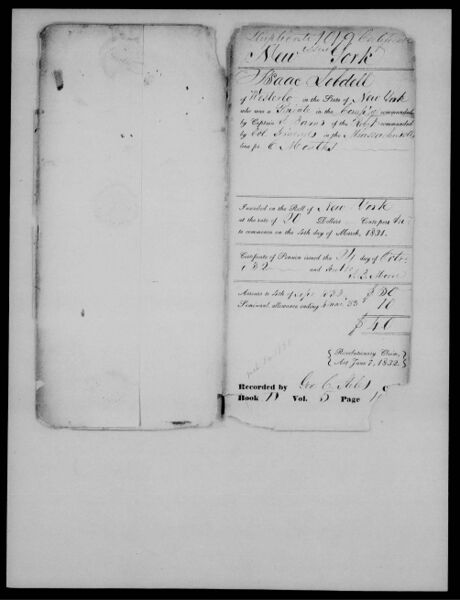 New York
Isaac Lobdell
of Westerlo in the State of New York
who was a Private in the Comp'y commanded
by Captain Barns of the Regt commanded
by Col Simonds in the Massachusetts
line for 6 Months
Inscribed on the Roll of New York
at the rate of 20 Dollars Cents per Ann
to commence on the 4th day of March, 1831.
Certificate of Pension issued the 24 day of Octo
1832 and
Arrears to 4th of Sept 1832 $30
Semi-anl. allowance ending 4 Mar 33 10
$40
{Revolutionary Claim,}
{Act June 7, 1832.}
Recorded by Geo C
Book D Vol. 5 Page